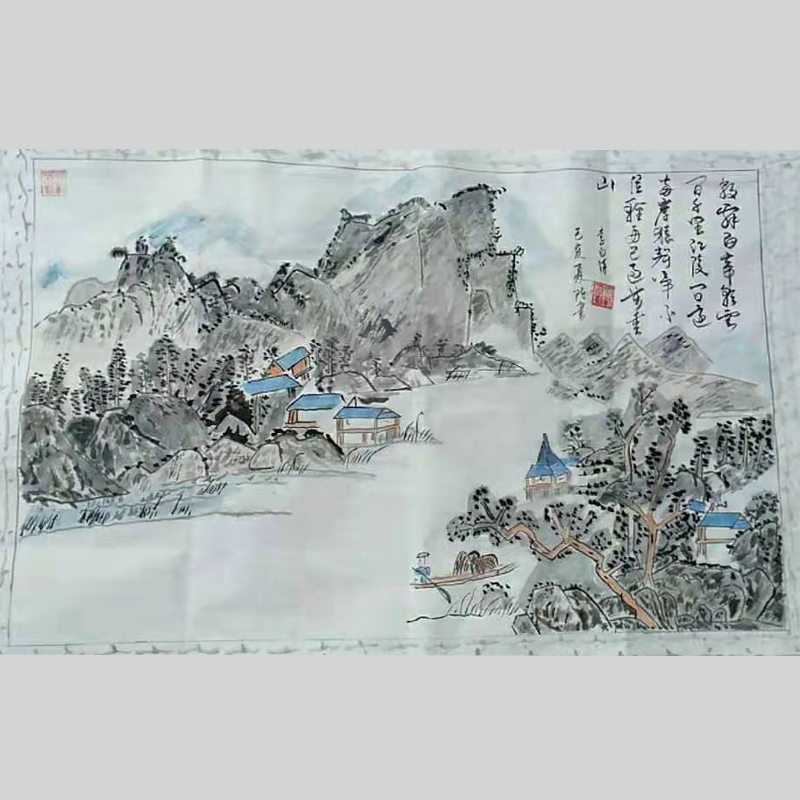 朝辞白帝彩雲
间千里江陵一日还
两岸猿声啼不
住輕舟已过萬重
山
李白诗
己亥夏書